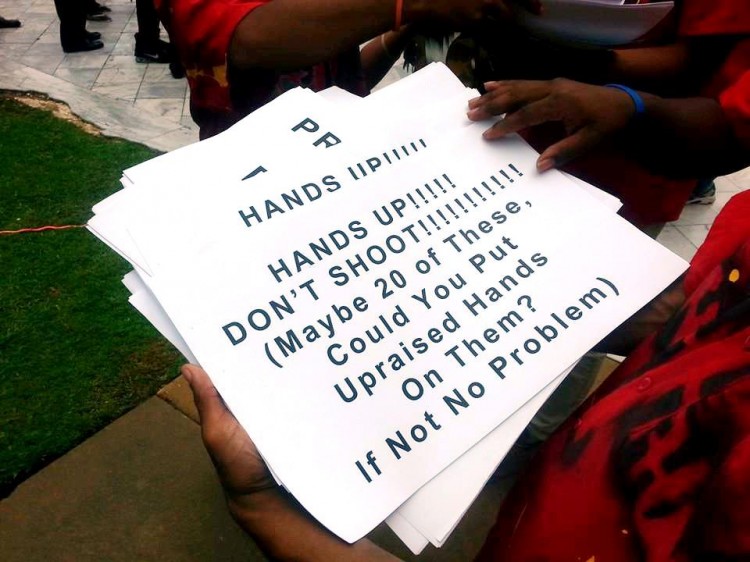 PR
HANDS UP!!!!!
HANDS UP!!!!!
DON'T SHOOT!!!!!!!!!!!
(Maybe 20 of These,
Could You Put
Upraised Hands
On Them?
If Not No Problem)